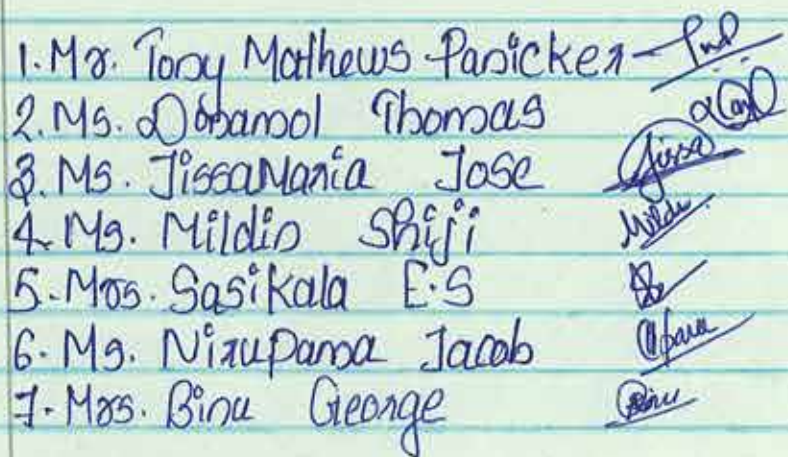 1. Mr. Tony Mathews Panicker -
2. Ms. Donamol Thomas
3. Ms. Jissa Maria Jose Jissa
4. Ms. Mildin Shiji Mildi
5. Mrs. Sasikala E.S
6. Ms. Nirupama Jacob
7. Mrs. Binu George Binu